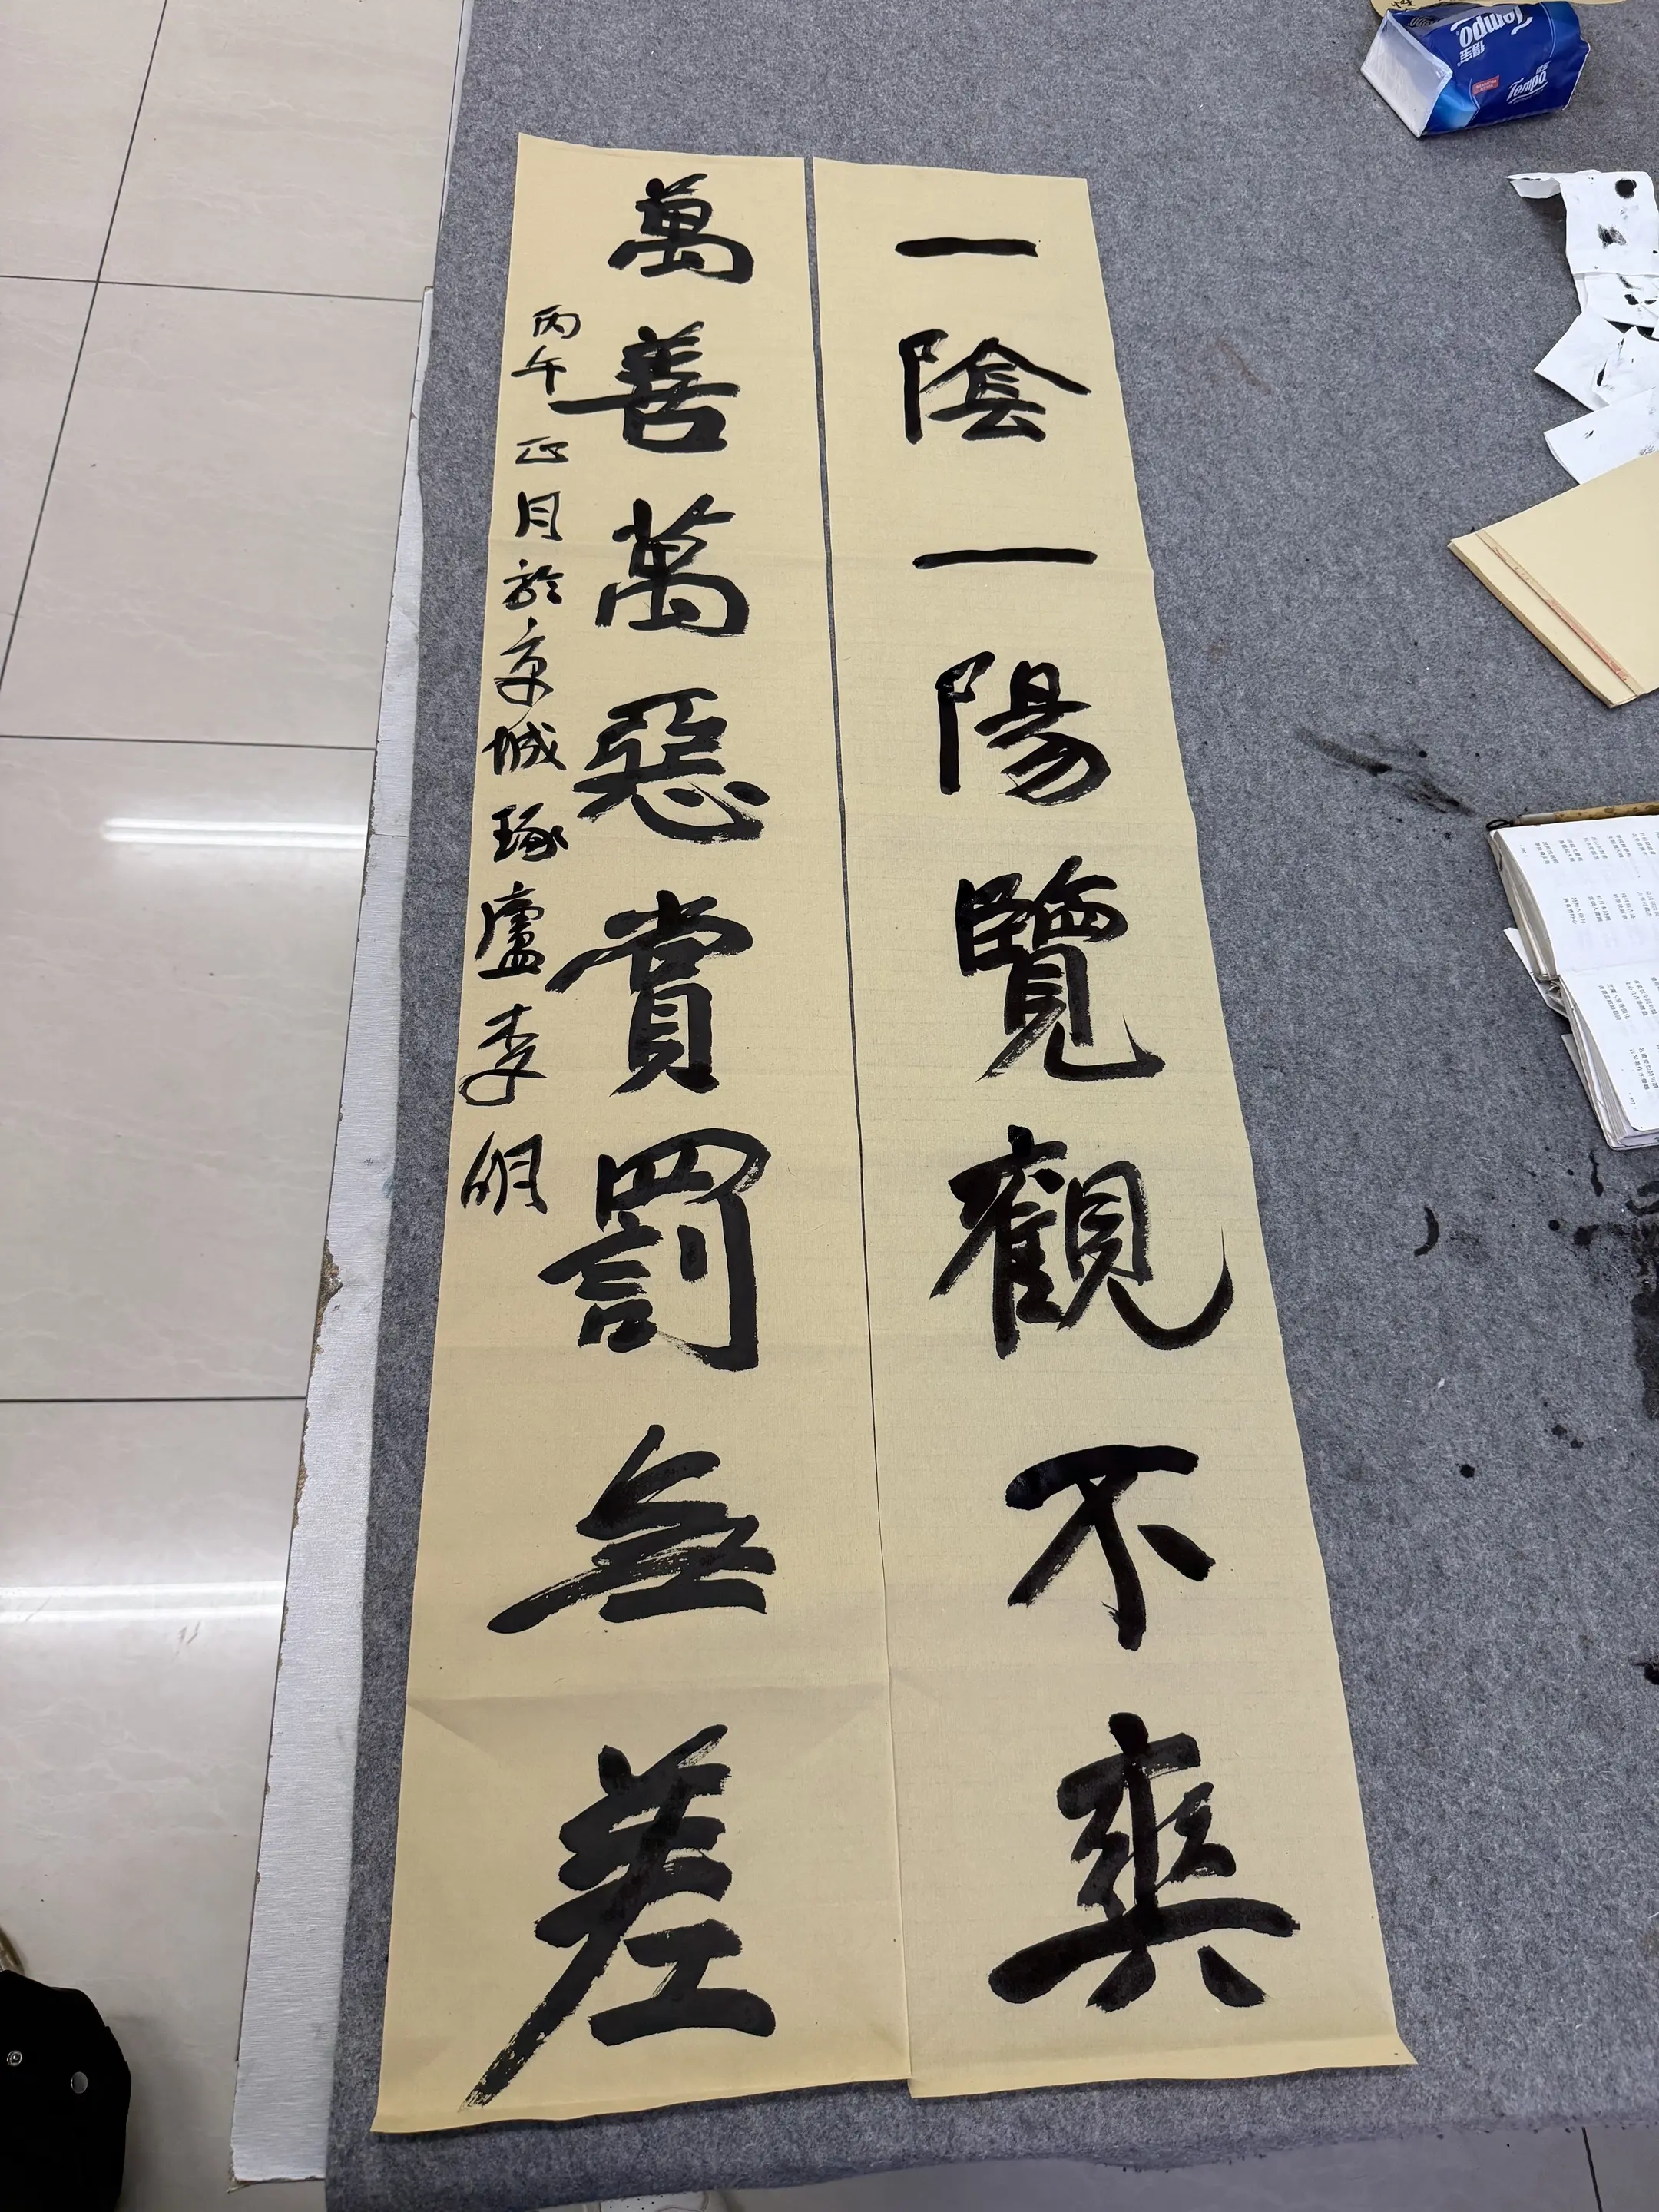 一陰一陽覽觀不爽
萬善萬惡賞罰無差
丙午正月於京城琢廬李明
Tempo
得宝
Tempo